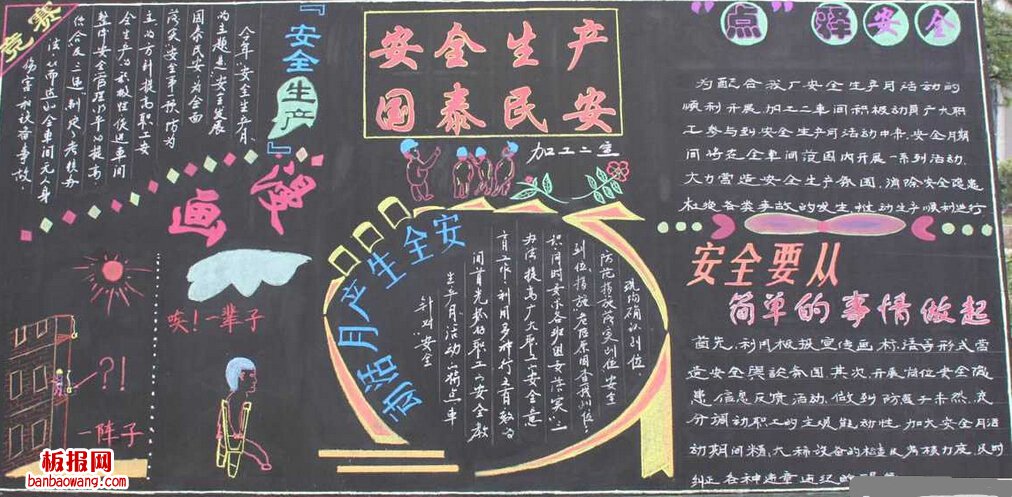 竞赛
『安全生产』
今年"安全生产月"
的主题是"安全发展
国泰民安"为全面
落实"安全事故
主"的方针提高职工安
全生产的积极性促进车间
整体安全管理水平的提高
漫画
唉!一辈子
?!
一阵子
安全生产
国泰民安
加工二车
安全生产月活动
针对"安全
生产月"活动特点车
间首先抓好职工"安全教
育"工作,利用多种行之有效的
办法提高广大职工"安全意
识"同时要求各班组要落实"三
到位"措施
防范措施落实到位,安全
现场确认到位.
"点"
释安全
为配合我厂安全生产月活动的
顺利开展,加工二车间积极动员广大职
工参与到安全生产月活动中来,安全月期
间将在全车间范围内开展一系列活动,
大力营造安全生产氛围,消除安全隐患
杜绝各类事故的发生,推动生产顺利进行
安全要从
简单的事情做起
首先,利用板报宣传画,标语等形式营
造安全舆论氛围,其次,开展岗位安全隐
患,信息反馈活动,做到防患于未然,充
分调动职工的主观能动性,加大安全月活
动期间精、大、稀设备的检查及考核力度,及时
纠正各种违章违纪的现象
板报网
banbaowang.com